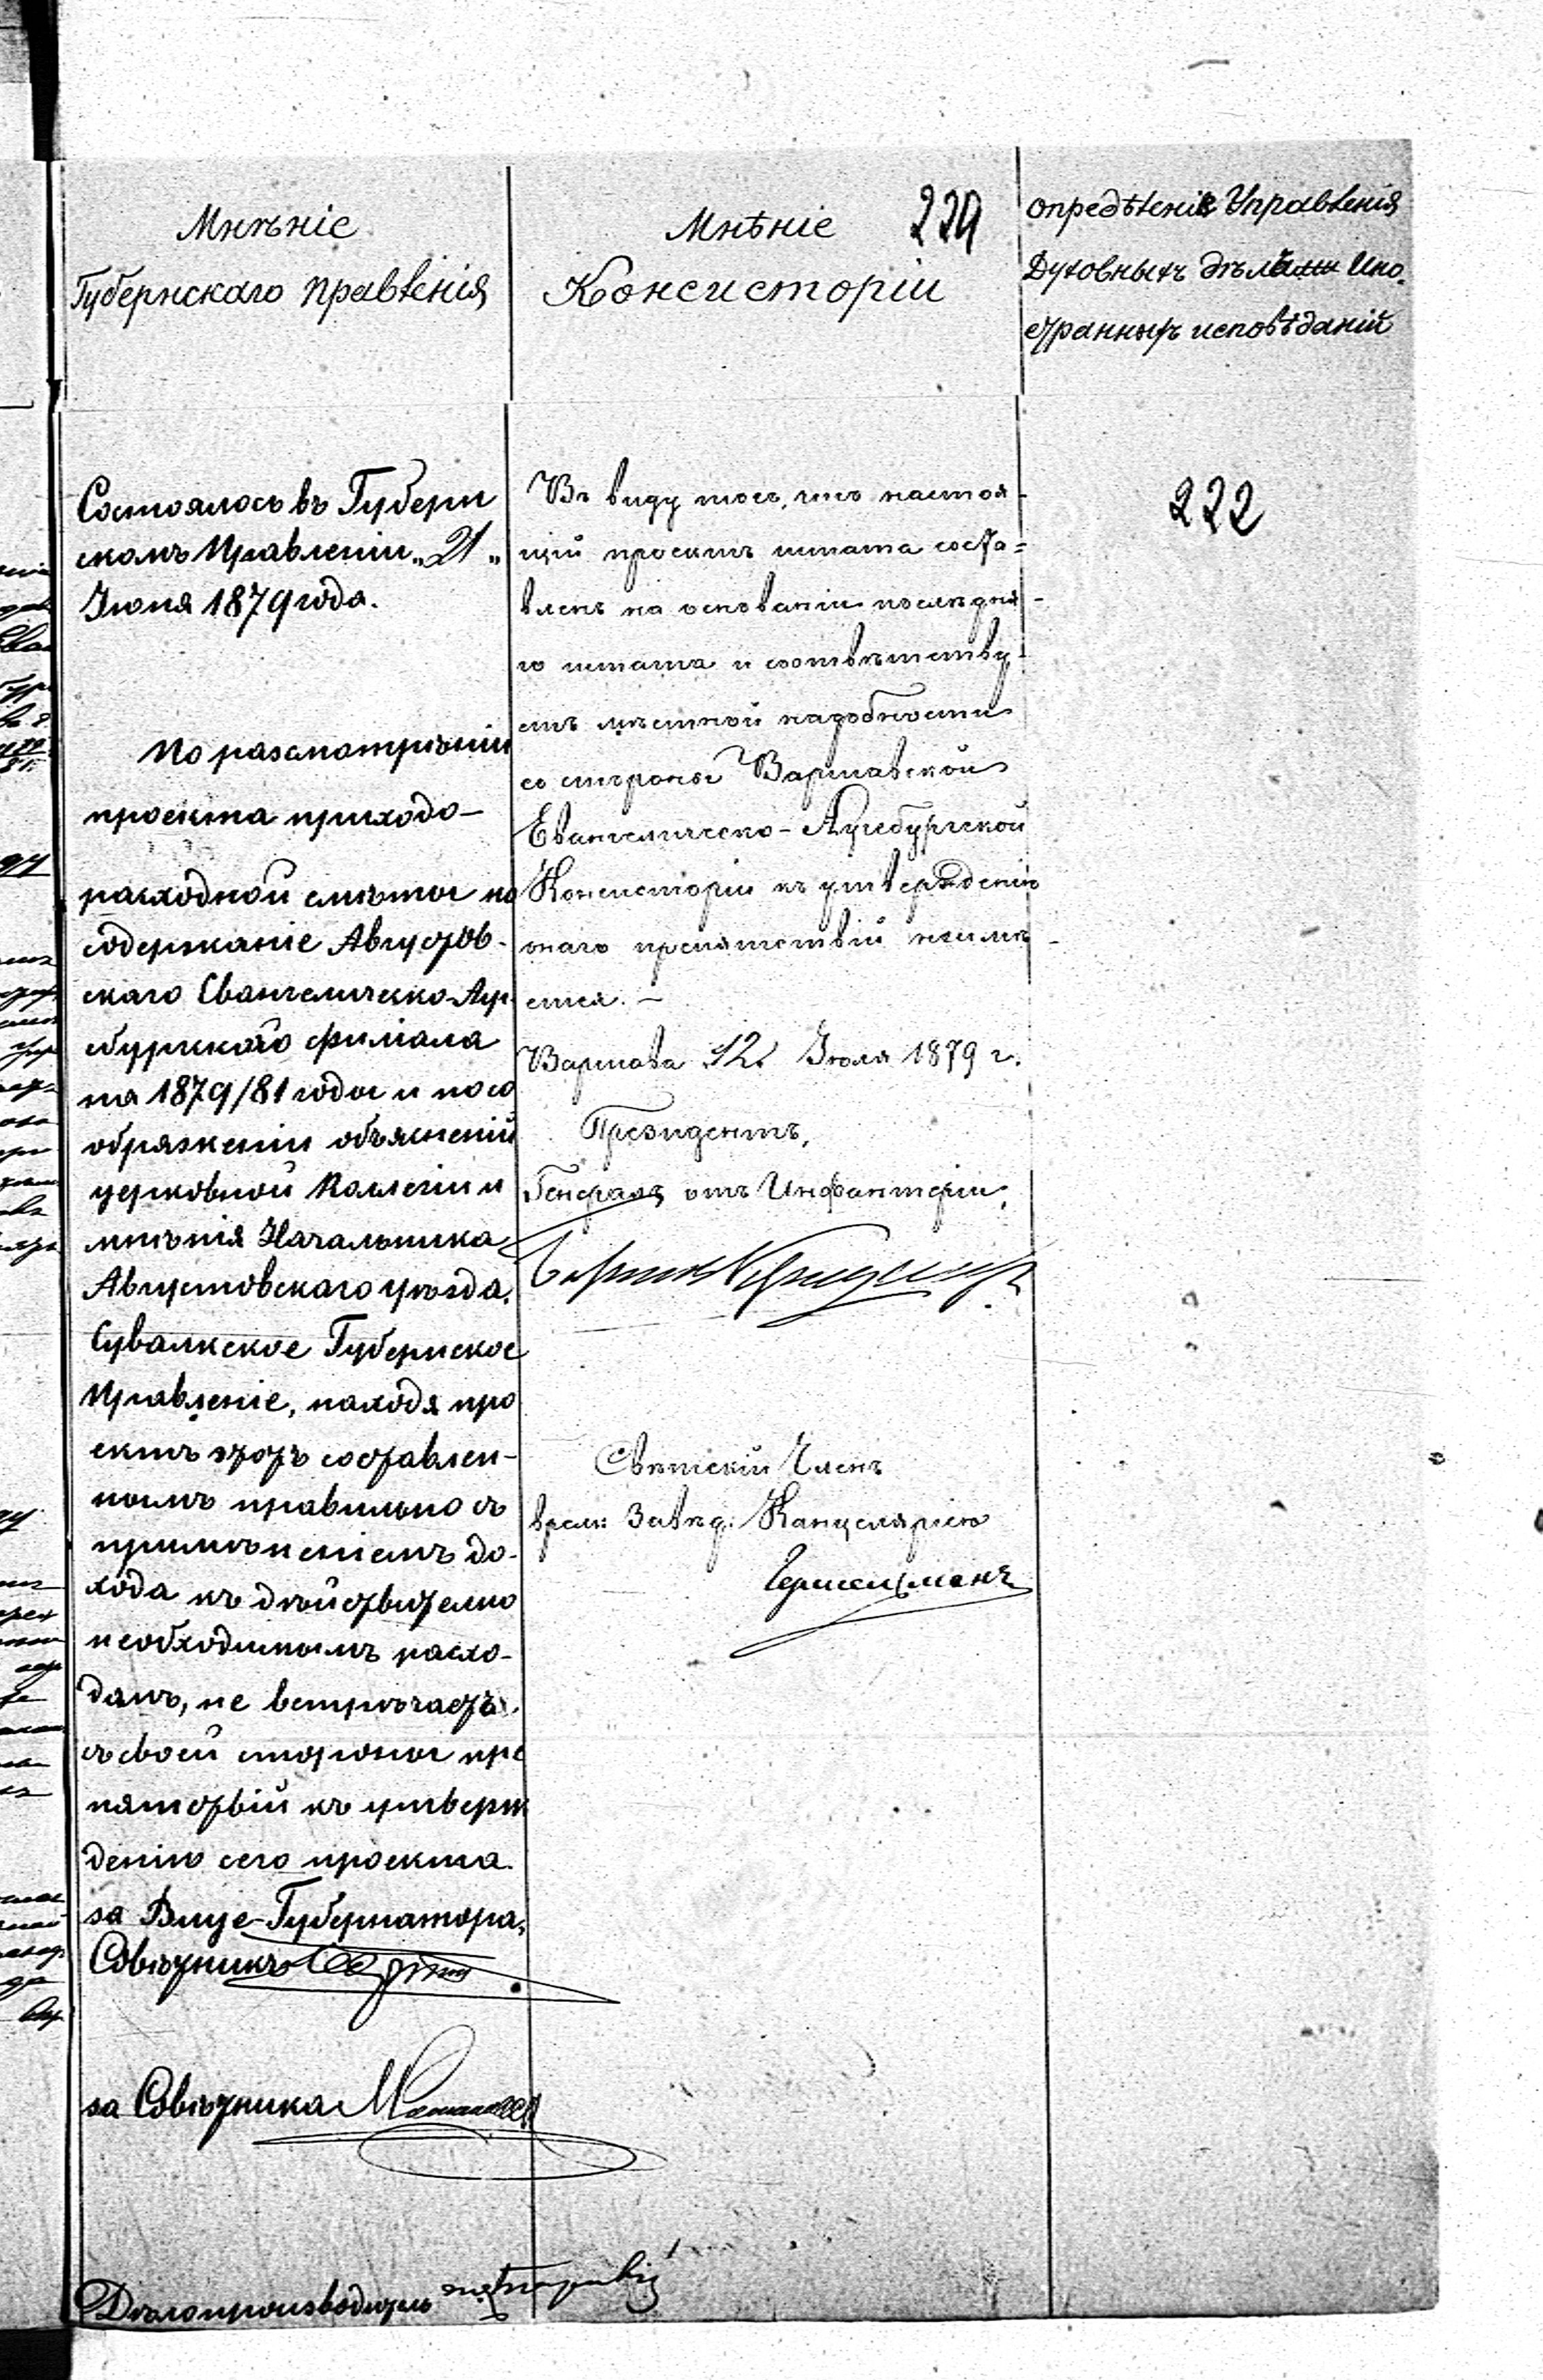 Мнѣніе
Губернскаго Правленія
Состоялось въ Губерн
скомъ Правленіи „21„
Іюня 1879 года.
По разсмотрѣніи
проекта приходо-
расходной смѣты на
содержаніе Августов-
скаго Евангелическо-Ауг
сбургскаго филіала
на 1879/81 годы и по со
ображеніи объясненій
церковной Коллегіи и
мнѣнія Начальника
Августовскаго уѣзда,
Сувалкское Губернское
Правленіе, находя про
ектъ этотъ составлен-
нымъ правильно съ
примѣненіемъ до-
хода къ дѣйствительно
необходимымъ расхо-
дамъ, не встрѣчаетъ
съ своей стороны пре
пятствій къ утверж
денію сего проекта.
за Вице-Губернатора,
Совѣтникъ
за Совѣтника
Дѣлопроизводитель
Мнѣніе 229
Консисторіи
Въ виду того, что настоя-
щій проектъ штата соста=
вленъ на основаніи послѣдня-
го штата и соотвѣтству-
етъ мѣстной надобности
со стороны Варшавской
Евангелическо-Аугсбургской
Консисторіи къ утвержденію
онаго препятствій неимѣ-
ется. —
Варшава 12. Іюля 1879 г.
Президентъ,
Генералъ отъ Инфантеріи,
Свѣтскій Членъ
врем: Завѣд: Канцеляріею
опредѣленіе Управленія
Духовныхъ дѣлъ Ино.
странныхъ исповѣданій
222